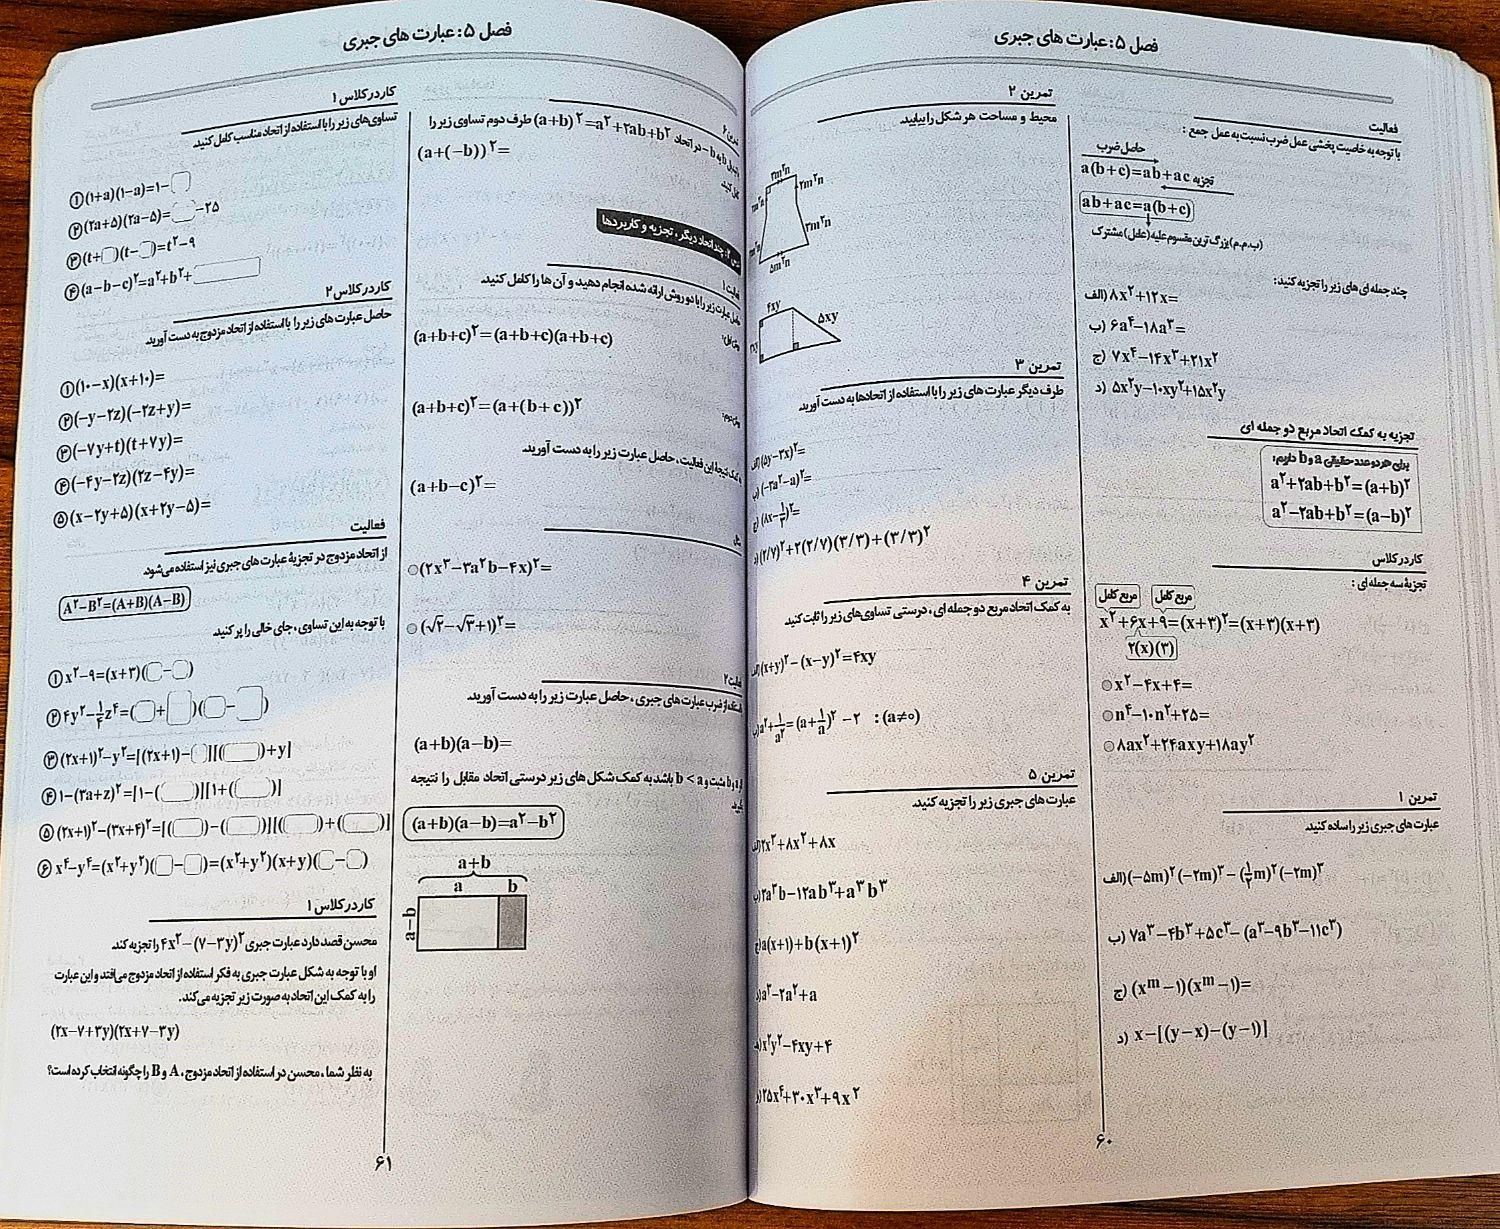 فصل ۵: عبارت های جبری
فعالیت
با توجه به خاصیت پخشی عمل ضرب نسبت به عمل جمع :
حاصل ضرب
a(b+c)=ab+ac
تجزیه
ab+ac=a(b+c)
(ب.م.م) بزرگ ترین مقسوم علیه (عامل) مشترک
چند جمله ای های زیر را تجزیه کنید:
الف) ۸x²+۱۲x=
ب) ۶a⁴−۱۸a³=
ج) ۷x⁴−۱۴x³+۲۱x²
د) ۵x²y−۱۰xy²+۱۵x²y
تجزیه به کمک اتحاد مربع دو جمله ای
برای هر دو عدد حقیقی a و b داریم:
a²+۲ab+b²=(a+b)²
a²−۲ab+b²=(a−b)²
کار در کلاس
تجزیه سه جمله ای :
مربع کامل مربع کامل
x²+۶x+۹=(x+۳)²=(x+۳)(x+۳)
۲(x)(۳)
x²−۴x+۴=
n⁴−۱۰n²+۲۵=
۸ax²+۲۴axy+۱۸ay²
تمرین ۱
عبارت های جبری زیر را ساده کنید.
الف) (−۵m)²(−۲m)³−(۱/۲m)²(−۲m)³
ب) ۷a³−۴b³+۵c³−(a³−۹b³−۱۱c³)
ج) (xᵐ−۱)(xᵐ−۱)=
د) x−[(y−x)−(y−۱)]
تمرین ۲
محیط و مساحت هر شکل را بیابید.
۲m²n
۲m²n
۲m²n
۵m²n
۴xy
۵xy
تمرین ۳
طرف دیگر عبارت های زیر را با استفاده از اتحادها به دست آورید.
الف) (۵y−۳x)²=
ب) (−۳a²−a)²=
ج) (۸x−۱/۲)²=
د) (۲/۷)²+۲(۲/۷)(۳/۳)+(۳/۳)²
تمرین ۴
به کمک اتحاد مربع دو جمله ای ، درستی تساوی‌های زیر را ثابت کنید.
الف) (x+y)²−(x−y)²=۴xy
ب) a²+۱/a²=(a+۱/a)²−۲ :(a≠۰)
تمرین ۵
عبارت های جبری زیر را تجزیه کنید.
الف) ۲x³+۸x²+۸x
ب) ۲a³b−۱۲ab³+a³b³
ج) a(x+۱)+b(x+۱)²
د) a³−۲a²+a
x²y²−۴xy+۴
۲۵x⁴+۳۰x³+۹x²
۶۰
فصل ۵: عبارت های جبری
تمرین ۶
با تبدیل b به −b در اتحاد (a+b)²=a²+۲ab+b² طرف دوم تساوی زیر را
کامل کنید.
(a+(−b))²=
درس ۲: چند اتحاد دیگر ، تجزیه و کاربردها
فعالیت ۱
حاصل عبارت زیر را با دو روش ارائه شده انجام دهید و آن ها را کامل کنید.
روش اول:
(a+b+c)²=(a+b+c)(a+b+c)
روش دوم:
(a+b+c)²=(a+(b+c))²
به کمک نتیجهٔ این فعالیت ، حاصل عبارت زیر را به دست آورید.
(a+b−c)²=
مثال
(۲x³−۳a²b−۴x)²=
(√۲−√۳+۱)²=
فعالیت ۲
با استفاده از ضرب عبارت های جبری ، حاصل عبارت زیر را به دست آورید.
(a+b)(a−b)=
اگر a و b مثبت و b < a باشد به کمک شکل های زیر درستی اتحاد مقابل را نتیجه
بگیرید.
(a+b)(a−b)=a²−b²
a+b
a b
a−b
کار در کلاس ۱
تساوی‌های زیر را با استفاده از اتحاد مناسب کامل کنید.
① (۱+a)(۱−a)=۱−
② (۲a+۵)(۲a−۵)= −۲۵
③ (t+ )(t− )=t²−۹
④ (a−b−c)²=a²+b²+
کار در کلاس ۲
حاصل عبارت های زیر را با استفاده از اتحاد مزدوج به دست آورید.
① (۱۰−x)(x+۱۰)=
② (−y−۲z)(−۲z+y)=
③ (−۷y+t)(t+۷y)=
④ (−۴y−۲z)(۲z−۴y)=
⑤ (x−۲y+۵)(x+۲y−۵)=
فعالیت
از اتحاد مزدوج در تجزیهٔ عبارت های جبری نیز استفاده می‌شود.
A²−B²=(A+B)(A−B)
با توجه به این تساوی ، جای خالی را پر کنید.
① x²−۹=(x+۳)( − )
② ۴y²−۱/۴z⁴=( + )( − )
③ (۲x+۱)²−y²=[(۲x+۱)− ][( )+y]
④ ۱−(۲a+z)²=[۱−( )][۱+( )]
⑤ (۲x+۱)²−(۳x+۴)²=[( )−( )][( )+( )]
⑥ x⁴−y⁴=(x²+y²)( − )=(x²+y²)(x+y)( − )
کار در کلاس ۱
محسن قصد دارد عبارت جبری ۴x²−(۷−۳y)² را تجزیه کند.
او با توجه به شکل عبارت جبری به فکر استفاده از اتحاد مزدوج می‌افتد و این عبارت
را به کمک این اتحاد به صورت زیر تجزیه می‌کند.
(۲x−۷+۳y)(۲x+۷−۳y)
به نظر شما ، محسن در استفاده از اتحاد مزدوج ، A و B را چگونه انتخاب کرده است؟
۶۱